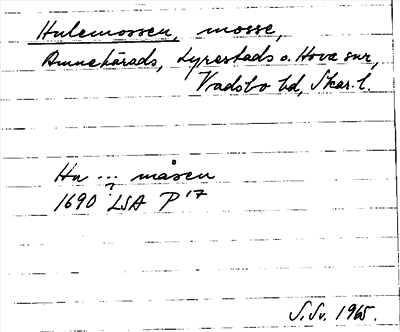 Hulemossen, mosse,
Amnehärads, Lyrestads o. Hova snr,
Vadsbo hd, Skar. l.
Hu ... måsen
?
1690 LSA P 17
S.Sv. 1965.